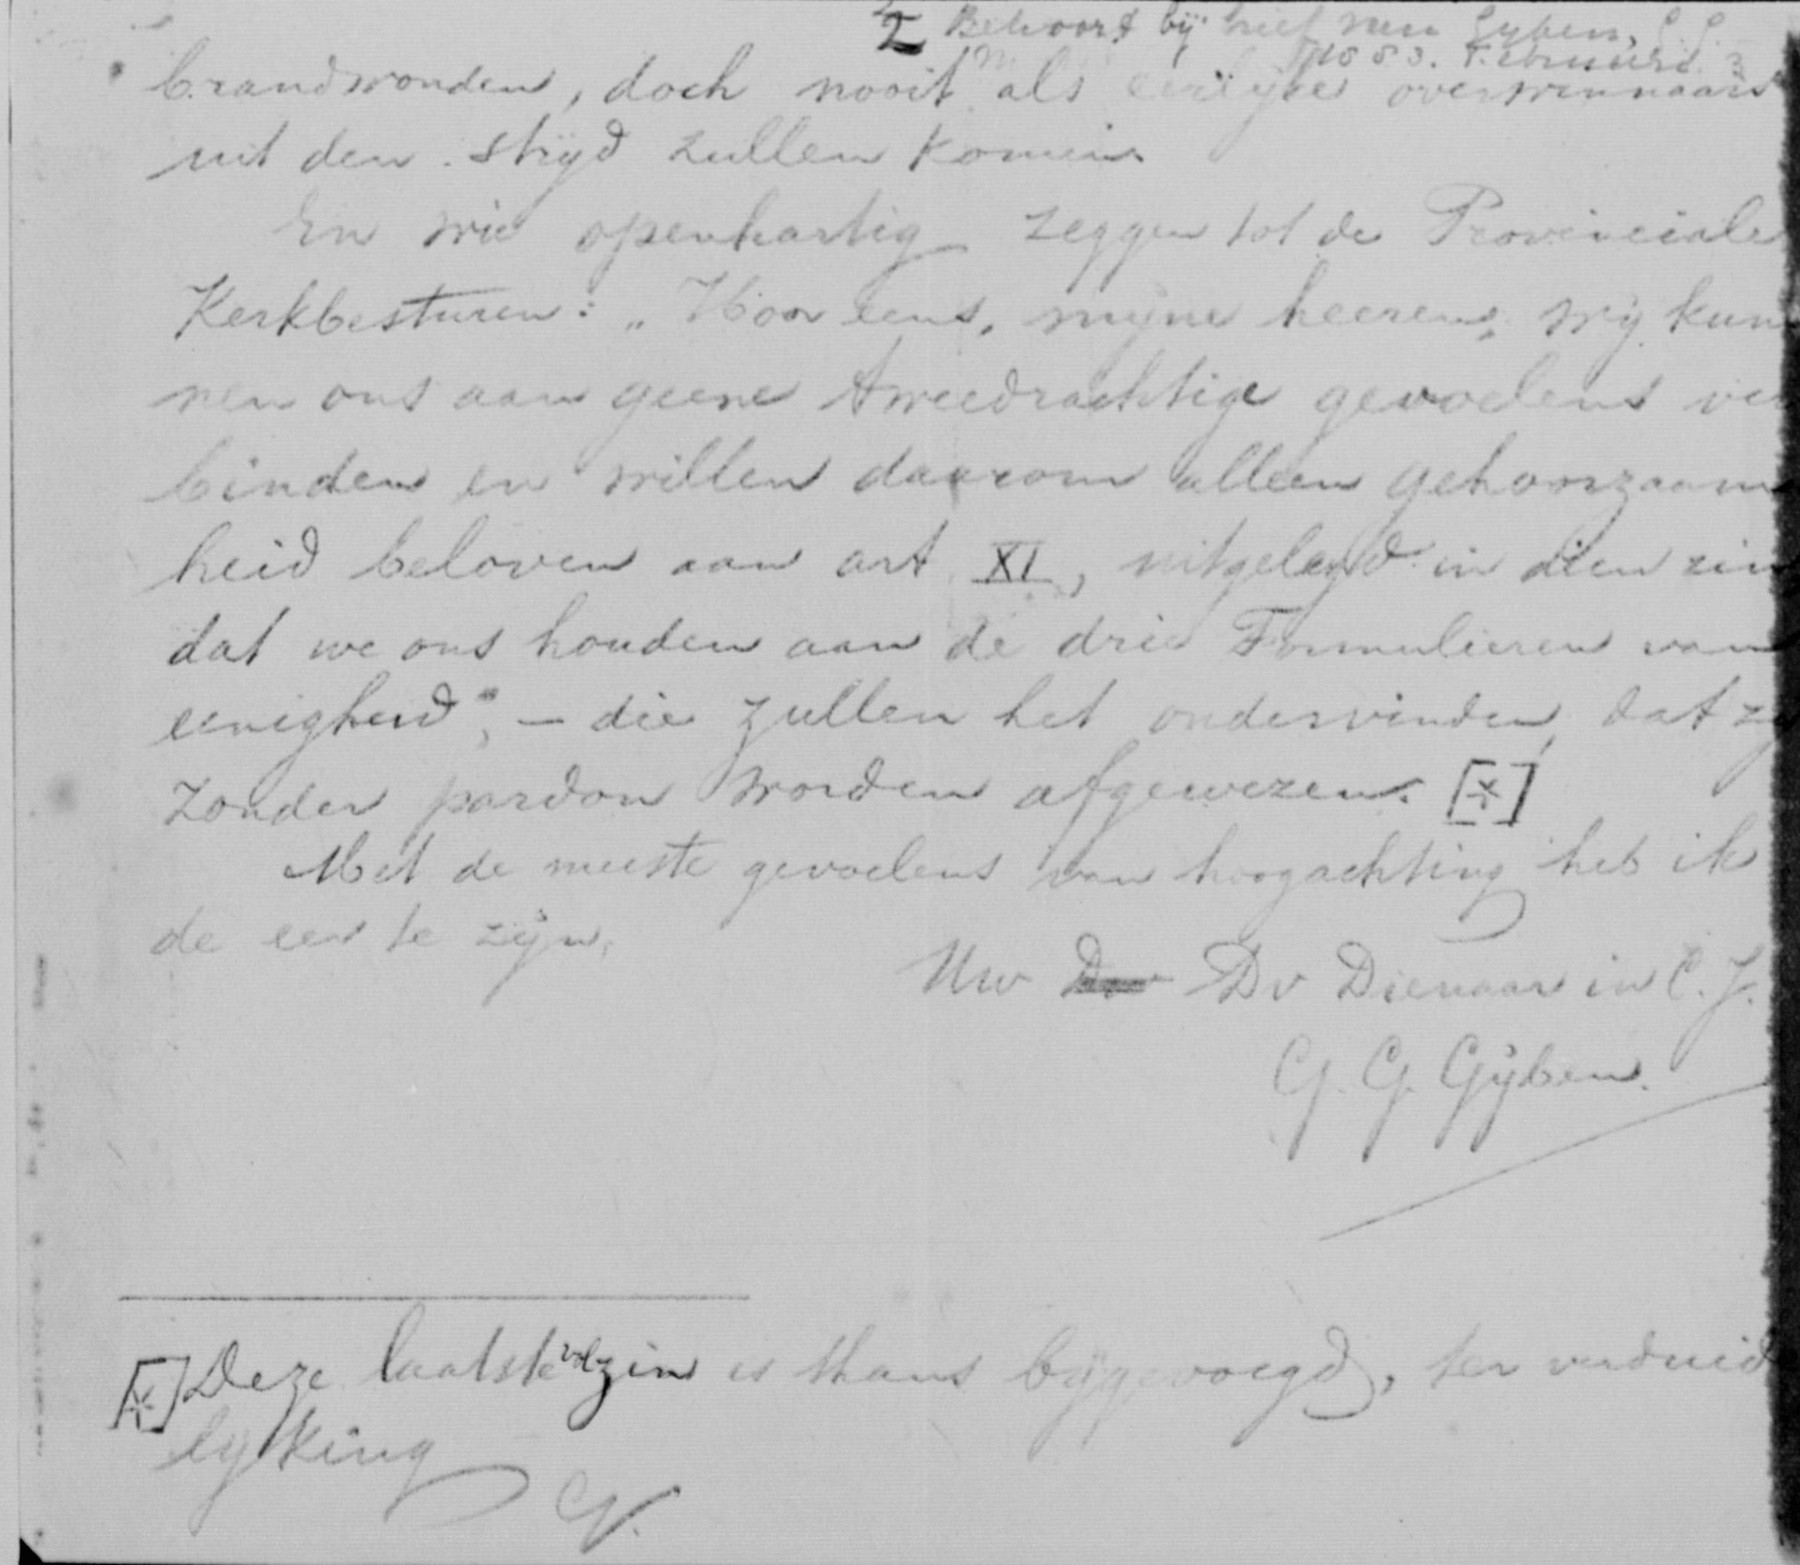 2 Behoort bij brief van Gyben, G.G.
1883. Februari. 3
brandwonden, doch nooit als eerlijke overwinnaars
uit den strijd zullen komen.
En wie openhartig zeggen tot de Provinciale
Kerkbesturen: „Hoor eens, mijne heeren, wij kun
nen ons aan geene tweedrachtige gevoelens ver
binden en willen daarom alleen gehoorzaam
heid beloven aan art XI, uitgelegd in dien zin
dat we ons houden aan de drie Formulieren van
eenigheid", – die zullen het ondervinden, dat zij
zonder pardon worden afgewezen. [*]
Met de meeste gevoelens van hoogachting heb ik
de eer te zijn,
Uw Dv Dienaar in C. J.
G. G. Gijben.
[*] Deze laatste volzin is thans bijgevoegd, ter verduide
lijking
G.